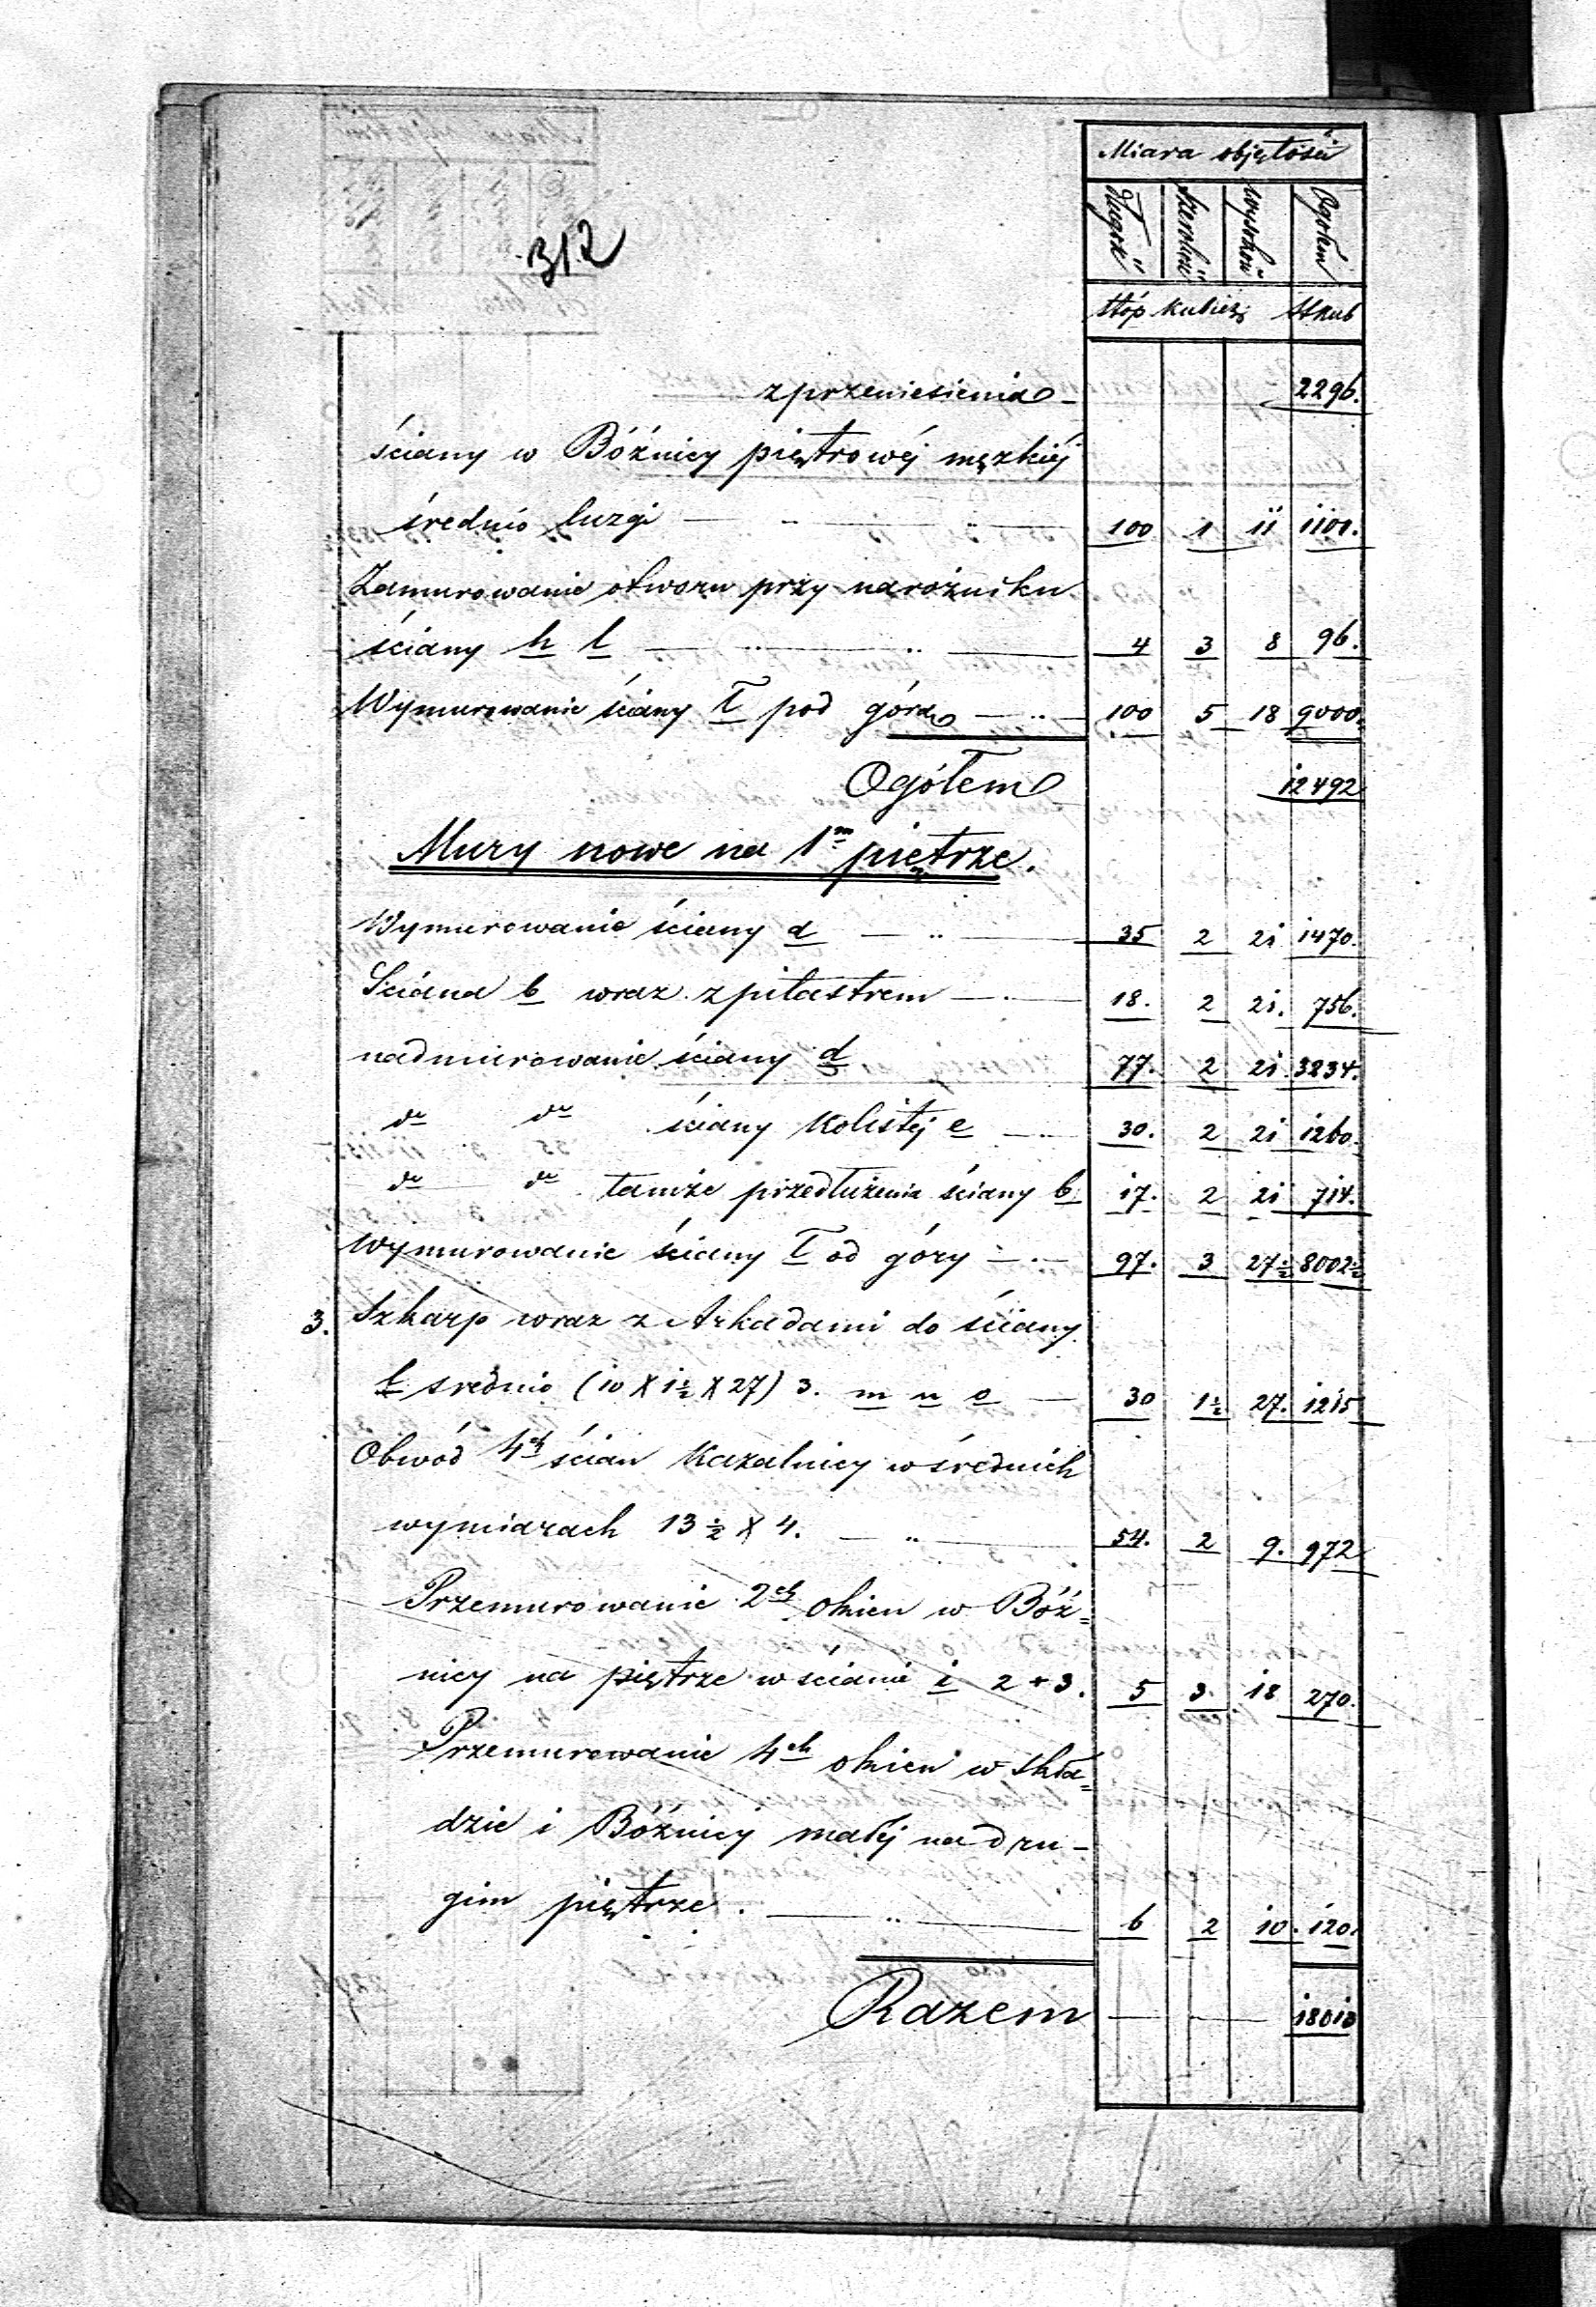 Miara objętości
Długość Szerokość Wysokość Ogółem
stóp kubiczn. st kub
312
z przeniesienia 2296.
ściany w Bóźnicy piętrowéj męzkiéj
średnio luzgi — " — " — 100 1 11 1100.
Zamurowanie otworu przy narożniku
ściany h l — " — " — 4 3 8 96.
Wymurowanie ściany Ł pod górą — " — 100 5 18 9000.
Ogółem 12492
Mury nowe na 1m piętrze.
Wymurowanie ściany a — " — 35 2 21 1470.
Ściana b wraz z pilastrem — " — 18. 2 21. 756.
nadmurowanie ściany d 77. 2 21 3234.
do do ściany Kolistej e — " — 30. 2 21 1260.
do do tamże przedłużenia ściany b 17. 2 21 714.
Wymurowanie ściany Ł od góry — " — 97. 3 27½ 8002½
3. Szkarp wraz z Arkadami do ściany
ł srednio (10 X 1½ X 27) 3. m n o — 30 1½ 27. 1215
Obwód 4ch ścian Kazalnicy w średnich
wymiarach 13½ X 4. — " — 54. 2 9. 972
Przemurowanie 2ch okien w Bóź=
nicy na piętrze w ścianie i 2 + 3. 5 3. 18 270.
Przemurowanie 4ch okien w skła=
dzie i Bóźnicy małéj na dru-
gim piętrze. — " — 6 2 10. 120.
Razem — — 18013